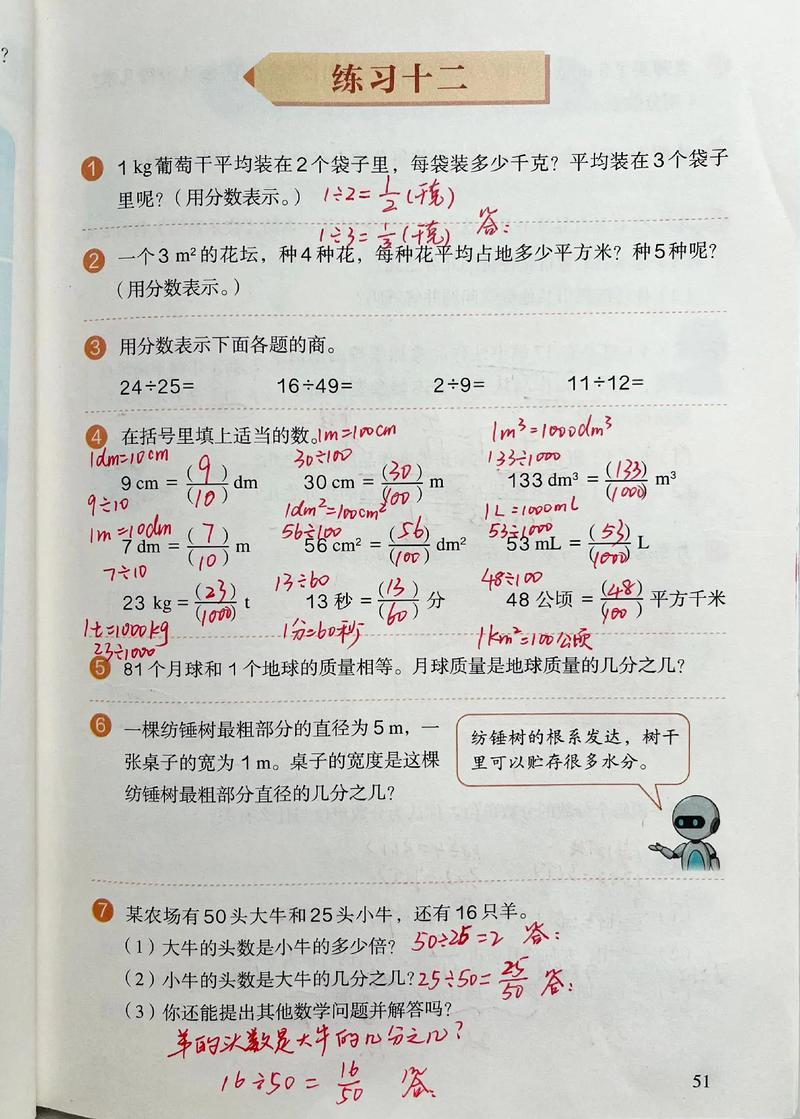 ?
练习十二
1 1 kg葡萄干平均装在2个袋子里，每袋装多少千克？平均装在3个袋子
里呢？（用分数表示。） 1÷2=1/2(千克)
1÷3=1/3(千克) 答：
2 一个3 m²的花坛，种4种花，每种花平均占地多少平方米？种5种呢？
（用分数表示。）
3 用分数表示下面各题的商。
24÷25= 16÷49= 2÷9= 11÷12=
4 在括号里填上适当的数。 1m=100cm 1m³=1000dm³
1dm=10cm 30÷100 133÷1000
9 cm = (9)/(10) dm 30 cm = (30)/(100) m 133 dm³ = (133)/(1000) m³
9÷10 1dm²=100cm² 1L=1000mL
1m=10dm 56÷100 53÷1000
7 dm = (7)/(10) m 56 cm² = (56)/(100) dm² 53 mL = (53)/(1000) L
7÷10 13÷60 48÷100
23 kg = (23)/(1000) t 13 秒 = (13)/(60) 分 48 公顷 = (48)/(100) 平方千米
1t=1000kg 1分=60秒 1km²=100公顷
23÷1000
5 81个月球和1个地球的质量相等。月球质量是地球质量的几分之几？
6 一棵纺锤树最粗部分的直径为5 m，一
张桌子的宽为1 m。桌子的宽度是这棵
纺锤树最粗部分直径的几分之几？
纺锤树的根系发达，树干
里可以贮存很多水分。
7 某农场有50头大牛和25头小牛，还有16只羊。
（1）大牛的头数是小牛的多少倍？ 50÷25=2 答：
（2）小牛的头数是大牛的几分之几？ 25÷50=25/50 答：
（3）你还能提出其他数学问题并解答吗？
羊的头数是大牛的几分之几？
16÷50=16/50 答：
51